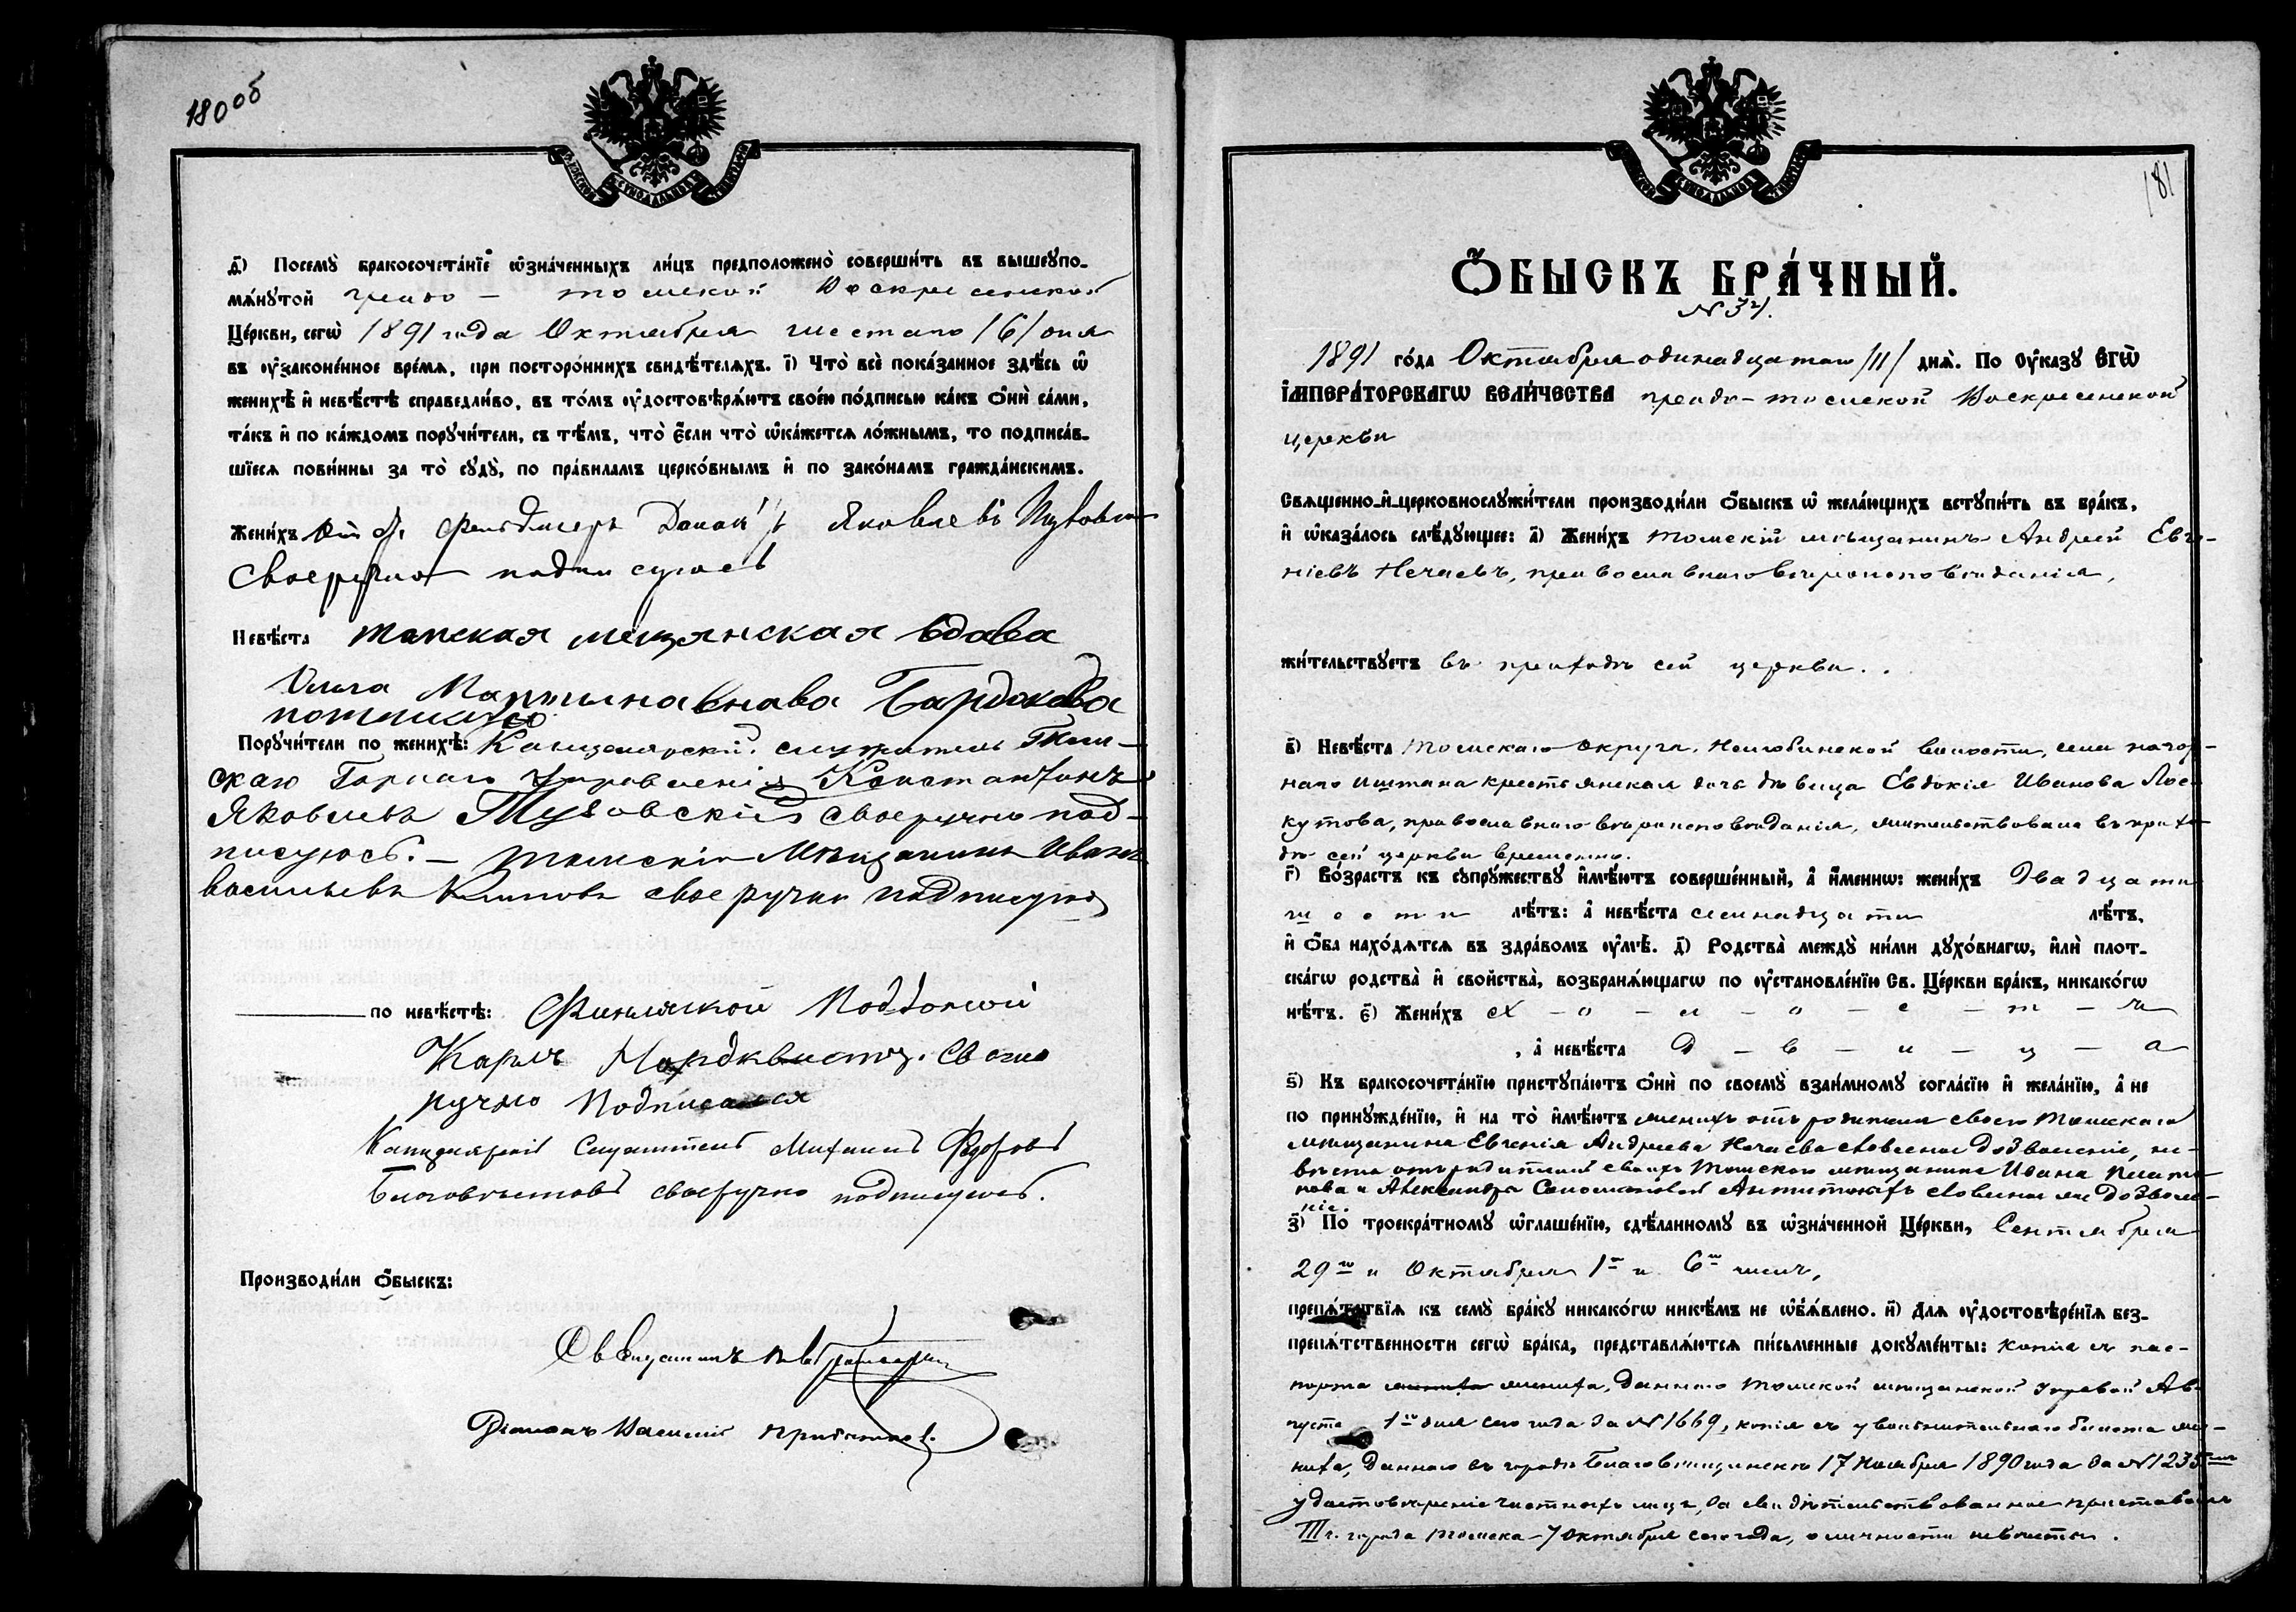 180 об
д҃) Посемꙋ̀ бракосочета́нїе ѡ҆зна́ченныхъ ли́цъ предположено̀ соверши́ть въ вышеꙋпо-
мѧ́нꙋтой градо - томской Воскресенской
Це́ркви, сегѡ̀ 1891 года Октября шестаго /6/ дня
въ ᲂу҆зако́ненное вре́мѧ, при посторо́ннихъ свидѣ́телѧхъ. і҃) Что̀ всѐ пока́занное здѣ́сь ѡ҆
женихѣ̀ и҆ невѣ́стѣ справедли́во, въ то́мъ ᲂу҆достовѣрѧ́ютъ свое́ю по́дписью ка́къ ѻ҆нѝ са́ми,
та́къ и҆ по ка́ждомъ порꙋчи́тели, съ тѣ́мъ, что̀ є҆́сли что̀ ѡ҆ка́жется ло́жнымъ, то подписа́в-
шїеся пови́нны за то̀ сꙋдꙋ̀, по пра́виламъ церко́внымъ и҆ по зако́намъ гражда́нскимъ.
Жени́хъ фельдшеръ Яковлевъ
Своеручно подписуюсь
Невѣ́ста томская мещянская вдава
Ольга Мартынавнава Бардакова
Порꙋчи́тели по женихѣ̀: Канцелярскій служитель Том-
скаго Горнаго Управленія Константинъ
Яковлевъ своеручно под-
писуюсь. — томскій Мѣщанинъ Иванъ
васильевъ Климовъ свое ручно подписуюс
по невѣ́стѣ:
Карлъ Нордквистъ. Своею
ручно Подписался
Канцелярскій Служитель Михаилъ Федоровъ
Благовѣстовъ своеручно подписуюсь.
Производи́ли ѻ҆́быскъ:
Священникъ
Діаконъ Василій
181
Ѻ҆́БЫСКЪ БРА́ЧНЫЙ.
№ 321.
1891 го́да Октября одинадцатаго /11/ днѧ̀. По Оу҆ка́зꙋ Е҆ГѠ̀
І҆МПЕРА́ТОРСКАГѠ ВЕЛИ́ЧЕСТВА градо-томской Воскресенской
церкви
Свѧщенно-и҆-церковнослꙋжи́тели производи́ли ѻ҆́быскъ ѡ҆ жела́ющихъ встꙋпи́ть въ бра́къ,
и҆ ѡ҆каза́лось слѣ́дꙋющее: а҃) Жени́хъ томскій мѣщанинъ Андрей Евге-
ніевъ Нечаевъ, православнаго вѣроисповѣданія,
жи́тельствꙋетъ въ приходѣ сей церкви.
в҃) Невѣ́ста Томскаго округа, Нелюбинской волости, села нагор-
наго Иштана крестьянская дочь дѣвица Евдокія Иванова Лос-
кутова, православнаго вѣроисповѣданія, жительствовала въ прихо-
дѣ сей церкви временно.
г҃) Во́зрастъ къ сꙋпрꙋ́жествꙋ и҆мѣ́ютъ соверше́нный, а҆ и҆́меннѡ: жени́хъ двадцати
шести лѣ́тъ: а҆ невѣ́ста семнадцати лѣ́тъ,
и҆ ѻ҆́ба нахо́дятся въ здра́вомъ ᲂу҆мѣ̀. д҃) Родства̀ междꙋ̀ ни́ми дꙋхо́внагѡ, и҆лѝ плот-
ска́гѡ родства̀ и҆ сво́йства, возбранѧ́ющагѡ по ᲂу҆становле́нїю Св. Це́ркви бра́къ, никако́гѡ
нѣ́тъ. є҃) Жени́хъ х - о - л - о - с - т - ъ
, а҆ невѣ́ста д - ѣ - в - и - ц - а
ѕ҃) Къ бракосочета́нїю пристꙋпа́ютъ ѻ҆нѝ по своемꙋ̀ взаи́мномꙋ согла́сїю и҆ жела́нїю, а҆ не
по принꙋжде́нїю, и҆ на то̀ и҆мѣ́ютъ женихъ отъ родителя своего Томскаго
мѣщанина Евгенія Андреева Нечаева словесное дозволеніе, не-
вѣста отъ родителей своихъ Томскаго мѣщанина Ивана
и Александры словесное же дозволе-
ніе.
з҃) По троекра́тномꙋ ѡ҆глаше́нїю, сдѣ́ланномꙋ въ ѡ҆зна́ченной Це́ркви, Сентября
29го и Октября 1го и 6го чиселъ,
препѧ́тствїя къ семꙋ̀ бра́кꙋ никако́гѡ никѣ́мъ не ѡ҆б̾ѧ́влено. и҃) Для ᲂу҆достовѣре́нїя без-
препѧ́тственности сегѡ̀ бра́ка, представлѧ́ются пи́сьменные докꙋме́нты: копія съ пас-
порта жениха, даннаго томской мѣщанской управой Ав-
густа 1го дня сего года за № 1669, копія съ увольнительнаго билета же-
ниха, даннаго въ городѣ Благовѣщенскѣ 17 Ноября 1890 года за № 1235
удостовѣреніе частныхъ лицъ, за свидѣтельствованное приставомъ
III ч. города томска - 7 Октября сего года, о личности невѣсты.